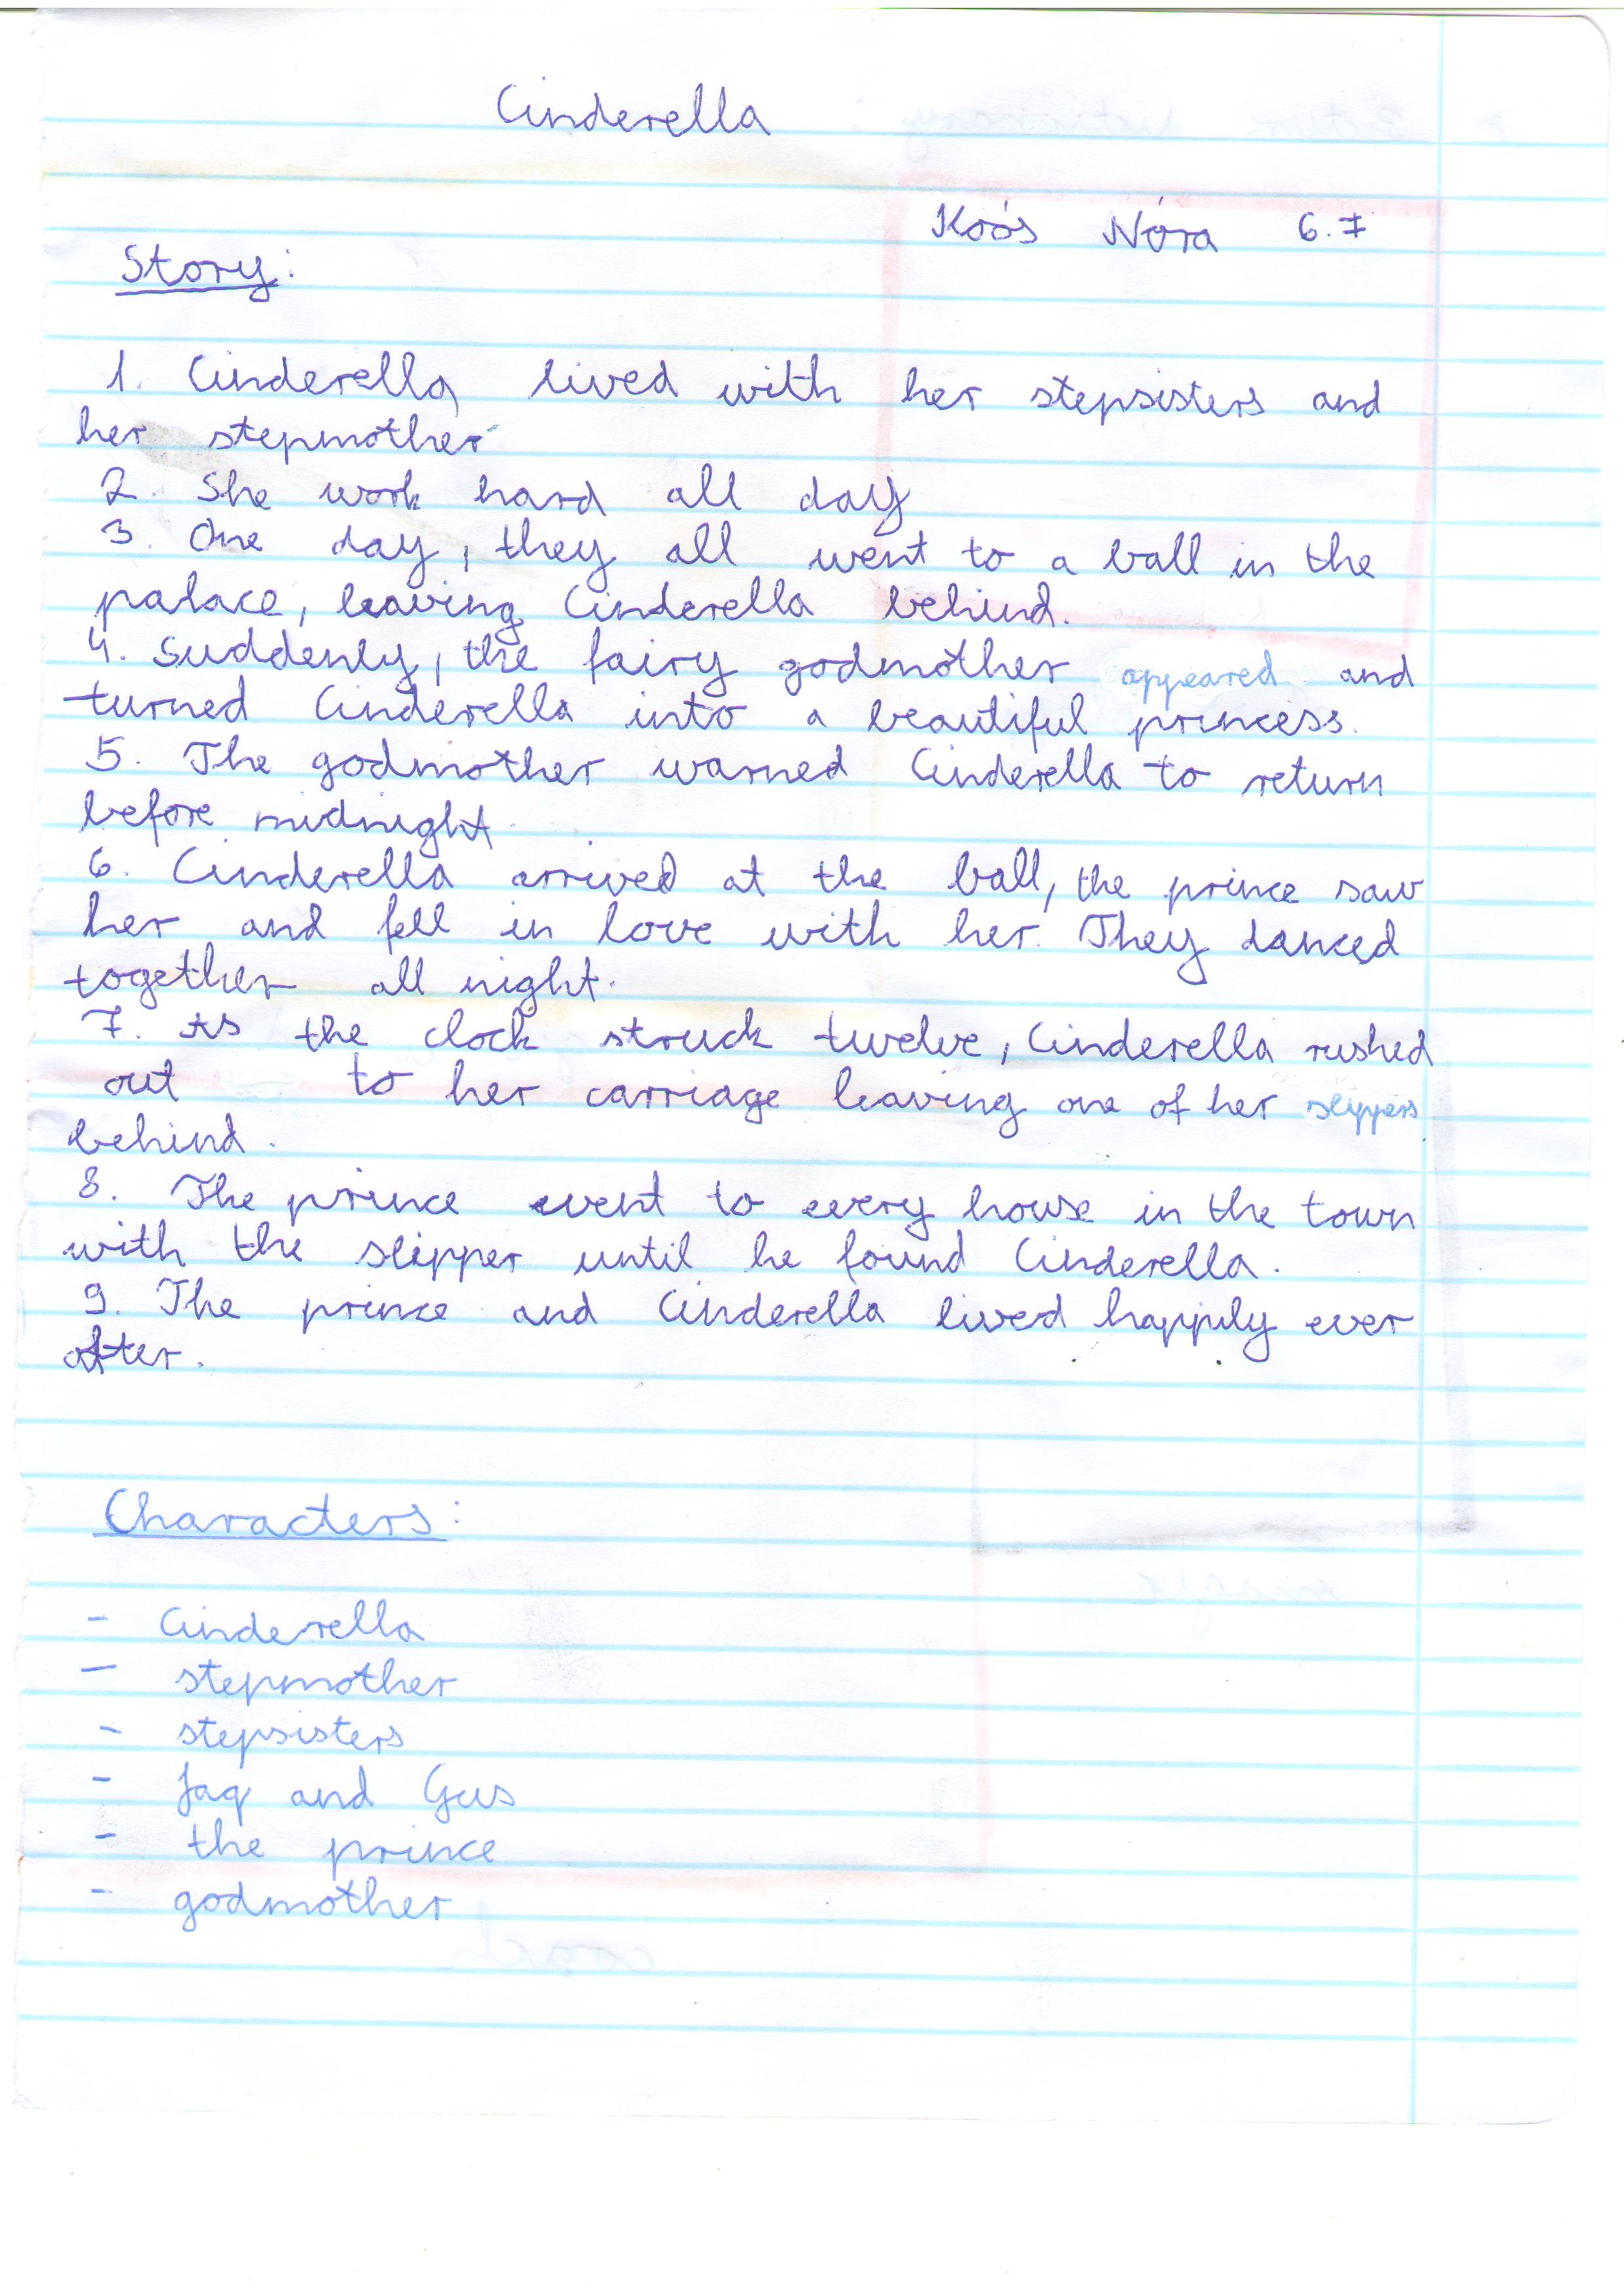 Cinderella
Koós Nóra 6.7
Story:
1. Cinderella lived with her stepsisters and
her stepmother
2. She work hard all day
3. One day, they all went to a ball in the
palace, leaving Cinderella behind.
4. Suddenly, the fairy godmother appeared and
turned Cinderella into a beautiful princess.
5. The godmother warned Cinderella to return
before midnight.
6. Cinderella arrived at the ball, the prince saw
her and fell in love with her. They danced
together all night.
7. As the clock struck twelve, Cinderella rushed
out to her carriage leaving one of her slippers
behind.
8. The prince went to every house in the town
with the slipper until he found Cinderella.
9. The prince and Cinderella lived happily ever
after.
Characters:
- Cinderella
- stepmother
- stepsisters
- Jaq and Gus
- the prince
- godmother